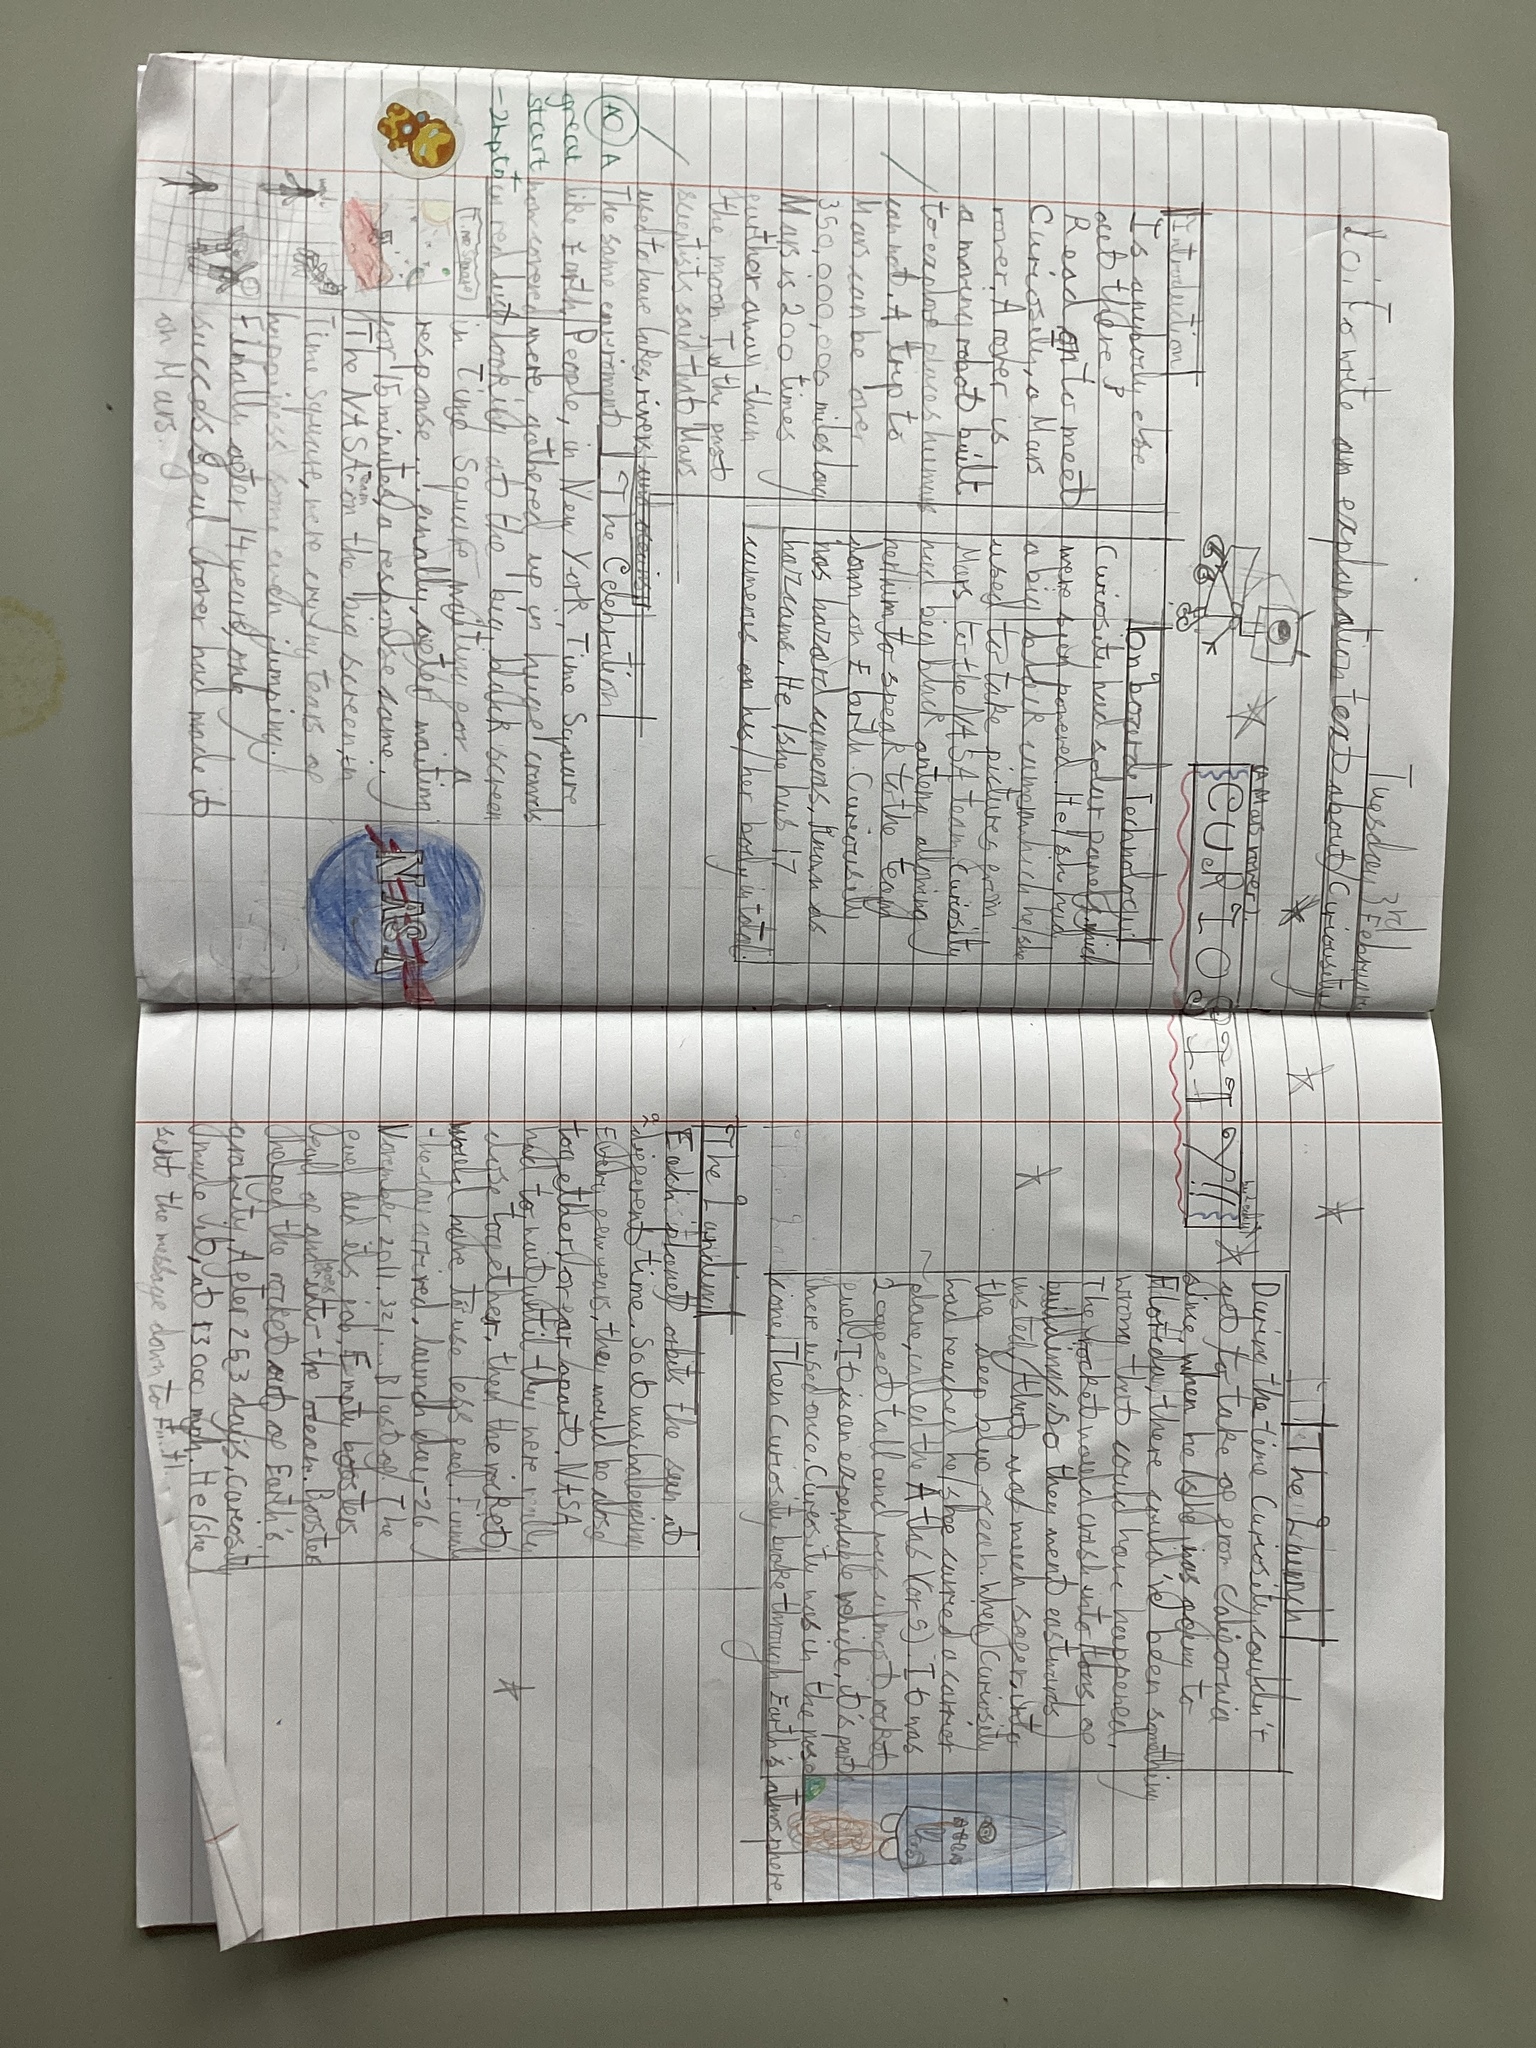 Tuesday 3rd February
L.O.: To write an explanation text about Curiosity
(A Mars rover)
CURIOSITY!!
Introduction
Is anybody else
out there?
Read on to meet
Curiosity, a Mars
rover. A rover is
a moving robot built
to explore places humans
cannot. A trip to
Mars can be over
350,000,000 miles long
Mars is 200 times
further away than
the moon. In the past
scientists said that Mars
used to have lakes, rivers and
The same enviroment
like Earth,
now covered
in red dust
On board Technology
Curiosity had solar panels which
were sun powered. He/she had
a big black camera which he/she
used to take pictures from
Mars to the NASA team. Curiosity
had big black antena allowing
her/him to speak to the team
down on Earth. Curiosity
has hazard cameras, known as
hazcams. He/she has 17
cameras on his/her body in total.
The Celebration
People, in New York, Time Square
were gathered up in huge crowds
looking at the big, blank screen
in Time Square waiting for a
response... finally, after waiting
for 15 minutes, a response came!
The NASA team on the big screen, in
Time Square, were crying tears of
happiness some even jumping.
Finally after 14 years, one
successful rover had made it
on Mars.
10 A
great
start
-2hpts
Time Square
NASA
The Launch
During the time Curiosity couldn't
get to take of from California
since, when he/she was going to
Florida, there could've been something
wrong that could have happened,
The rocket would crash into tons of
buildings, so they went eastwards
instead, that was much safer, into
the deep blue ocean. When Curiosity
had reached he/she carried a carrier
plane, called the Atlas V or 5) It was
200 feet tall and was almost rocket
fuel. It is an expendable vehicle, it's parts
were used once. Curiosity was in the nose
cone. Then Curiosity broke through Earth's atmosphere.
The Landing
Each planet orbits the sun at
a different time. So it was challenging
Every few years, they would be close
together/or far apart. NASA
had to wait until they were really
close together, then the rocket
would have to use less fuel. Finally
the day arrived, launch day - 26
November 2011. 3 2 1 ... Blast of! The
fuel did its job, Empty boosters
fell of and into the ocean. Booster
helped the rocket out of Earth's
gravity. After 253 days, Curiosity
made it, at 13000 mph. He/she
sent the message down to Earth.